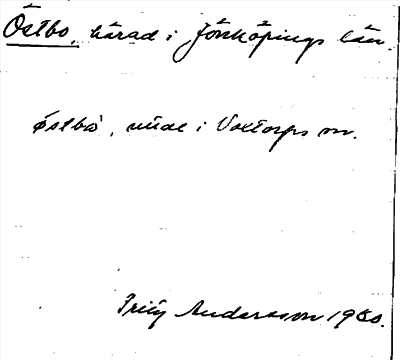 Östbo, härad i Jönköpings län.
östbo, uttal i Voxtorps sn.
Fritz Andersson 1930.